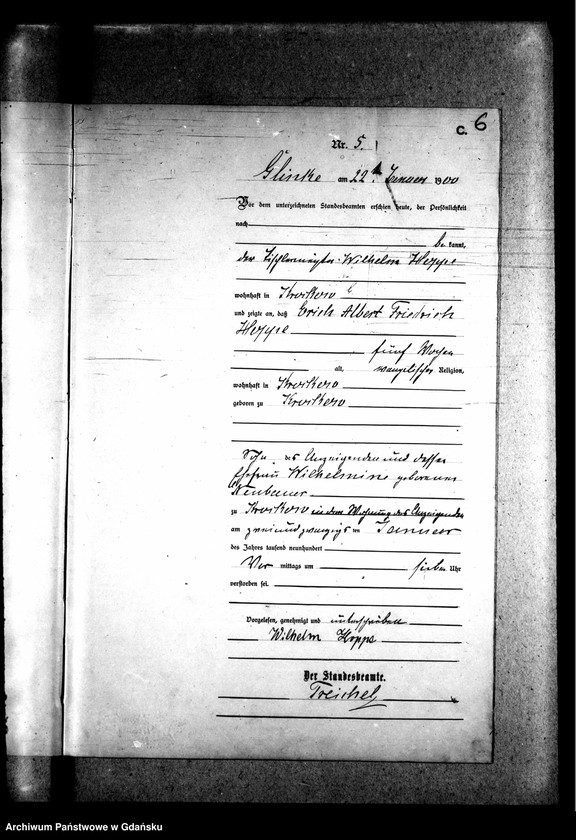 C. 6
Nr. 5.
Glinke am 22 Januar 1900
Vor dem unterzeichneten Standesbeamten erschien heute, der Persönlichkeit
nach
be kannt,
der Tischlermeister Wilhelm Hoppe
wohnhaft in
und zeigte an, daß Erich Albert Friedrich
Hoppe
fünf Wochen
alt, evangelischer Religion,
wohnhaft in
geboren zu
Sohn des Anzeigenden und dessen
Ehefrau Wilhelmine geborenen
Neubauer
zu in der Wohnung des Anzeigenden
am zweiundzwanzigsten Januar
des Jahres tausend neunhundert
Vor mittags um sieben Uhr
verstorben sei.
Vorgelesen, genehmigt und unterschrieben
Wilhelm Hoppe
Der Standesbeamte.
Treichel
Archiwum Państwowe w Gdańsku